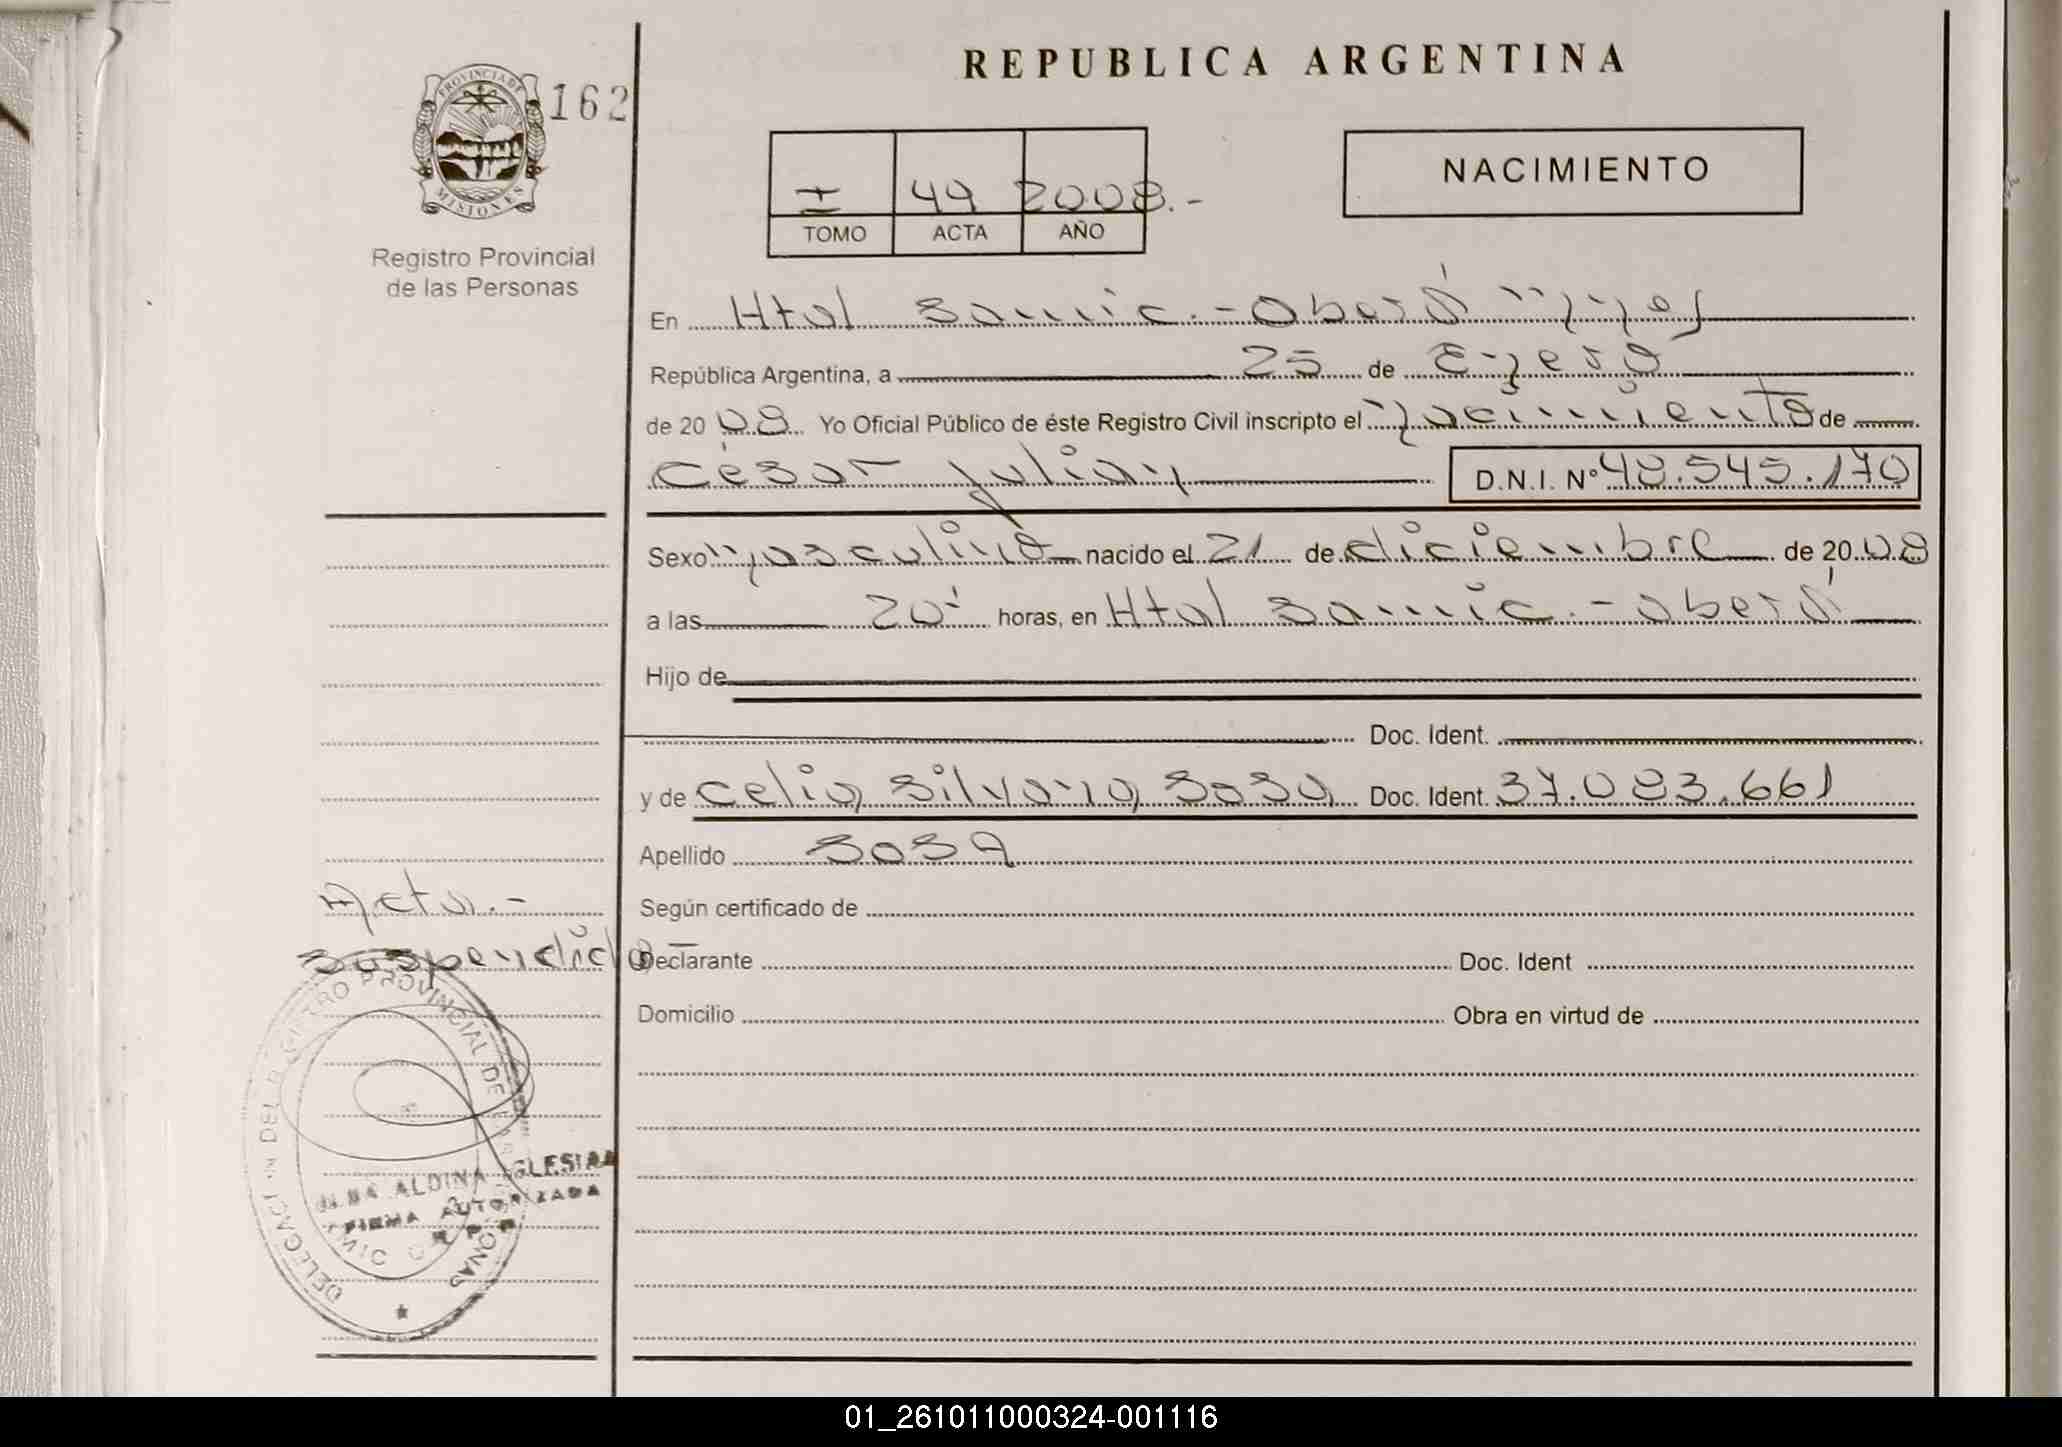 REPUBLICA ARGENTINA
PROVINCIA DE
MISIONES
162
Registro Provincial
de las Personas
I 49 2008.-
TOMO ACTA AÑO
NACIMIENTO
En Htal Samic.-Oberá
República Argentina, a 25 de Enero
de 20 08 Yo Oficial Público de éste Registro Civil inscripto el Nacimiento de
César Julian D.N.I. Nº 48.545.170
Sexo Masculino nacido el 21 de diciembre de 20 08
a las 20 horas, en Htal Samic.-Oberá
Hijo de
Doc. Ident.
y de Celia Silvana Sosa Doc. Ident. 37.083.661
Apellido SOSA
Según certificado de
Acta.-
Suspendida
Declarante Doc. Ident
Domicilio Obra en virtud de
ALDINA IGLESIAS
FIRMA AUTORIZADA
01_261011000324-001116